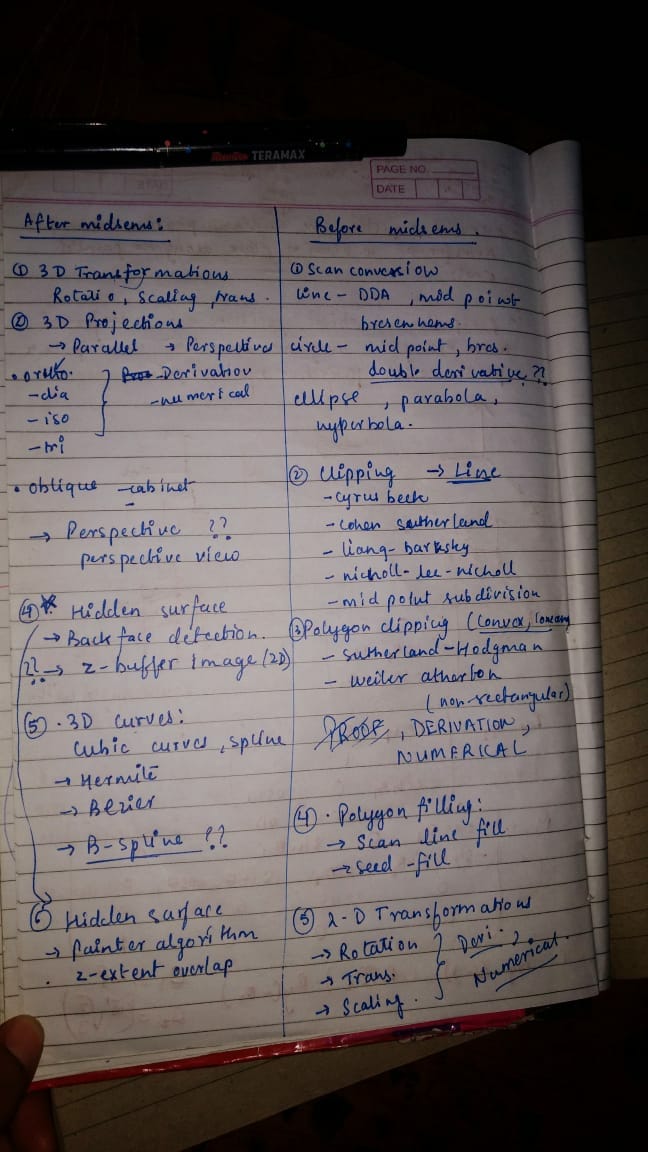 TERAMAX
PAGE NO.
DATE
After midsems:
① 3D Transformations
Rotatio, Scaling, trans.
② 3D Projections
→ Parallel → Perspective
• ortho.
- dia
- iso
- tri
- Derivation
- numerical
• oblique - cabinet
-
→ Perspective ??
perspective view
④* Hidden surface
→ Back face detection.
??→ z-buffer Image (2D)
⑤ . 3D curves:
Cubic curves, spline
→ Hermite
→ Bezier
→ B-spline ??
⑥ Hidden surface
→ Painter algorithm
. z-extent overlap
Before midsems.
① Scan conversion
line - DDA, mid point
bresenhems.
circle - mid point, bres.
double derivative??
ellipse, parabola,
hyperbola.
② Clipping → Line
- cyrus beck
- cohen sutherland
- liang-barksky
- nicholl-lee-nicholl
- mid point subdivision
③ Polygon clipping (Convex,
- Sutherland-Hodgman
- weiler atharton
(non-rectangular)
PROOF, DERIVATION,
NUMERICAL
④ . Polygon filling:
→ Scan line fill
→ seed-fill
⑤ 2-D Transformations
→ Rotation
→ Trans.
→ Scaling.
Deri.,
Numerical.